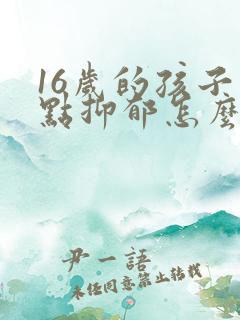 16歲的孩子
點抑郁怎麼
尹一語
未經同意禁止轉載